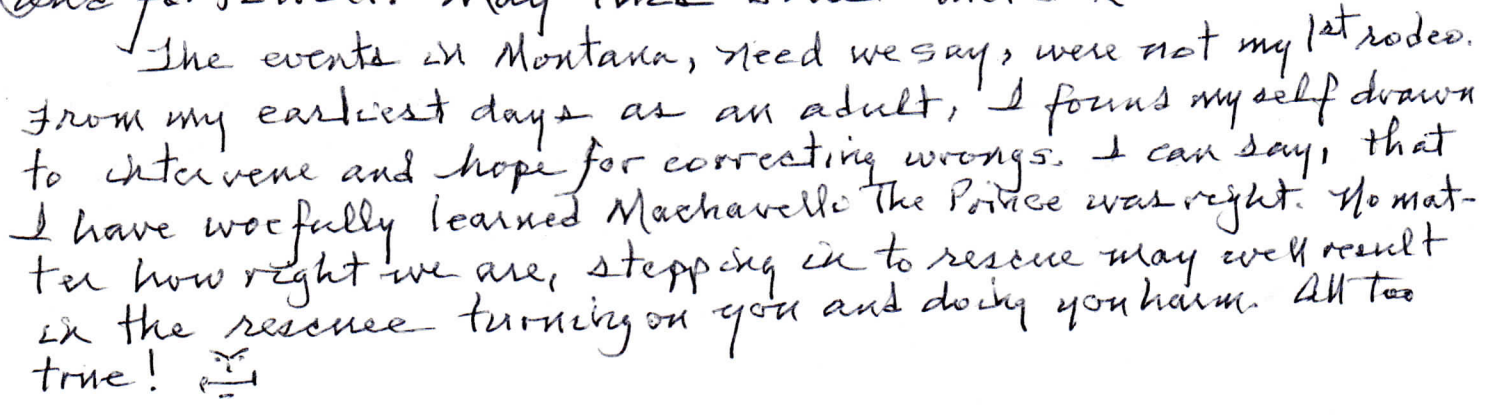 The events in Montana, need we say, were not my 1st rodeo.
From my earliest days as an adult, I found myself drawn
to intervene and hope for correcting wrongs. I can say, that
I have woefully learned Machavello The Prince was right. No mat-
ter how right we are, stepping in to rescue may well result
in the rescuee turning on you and doing you harm. All too
true!